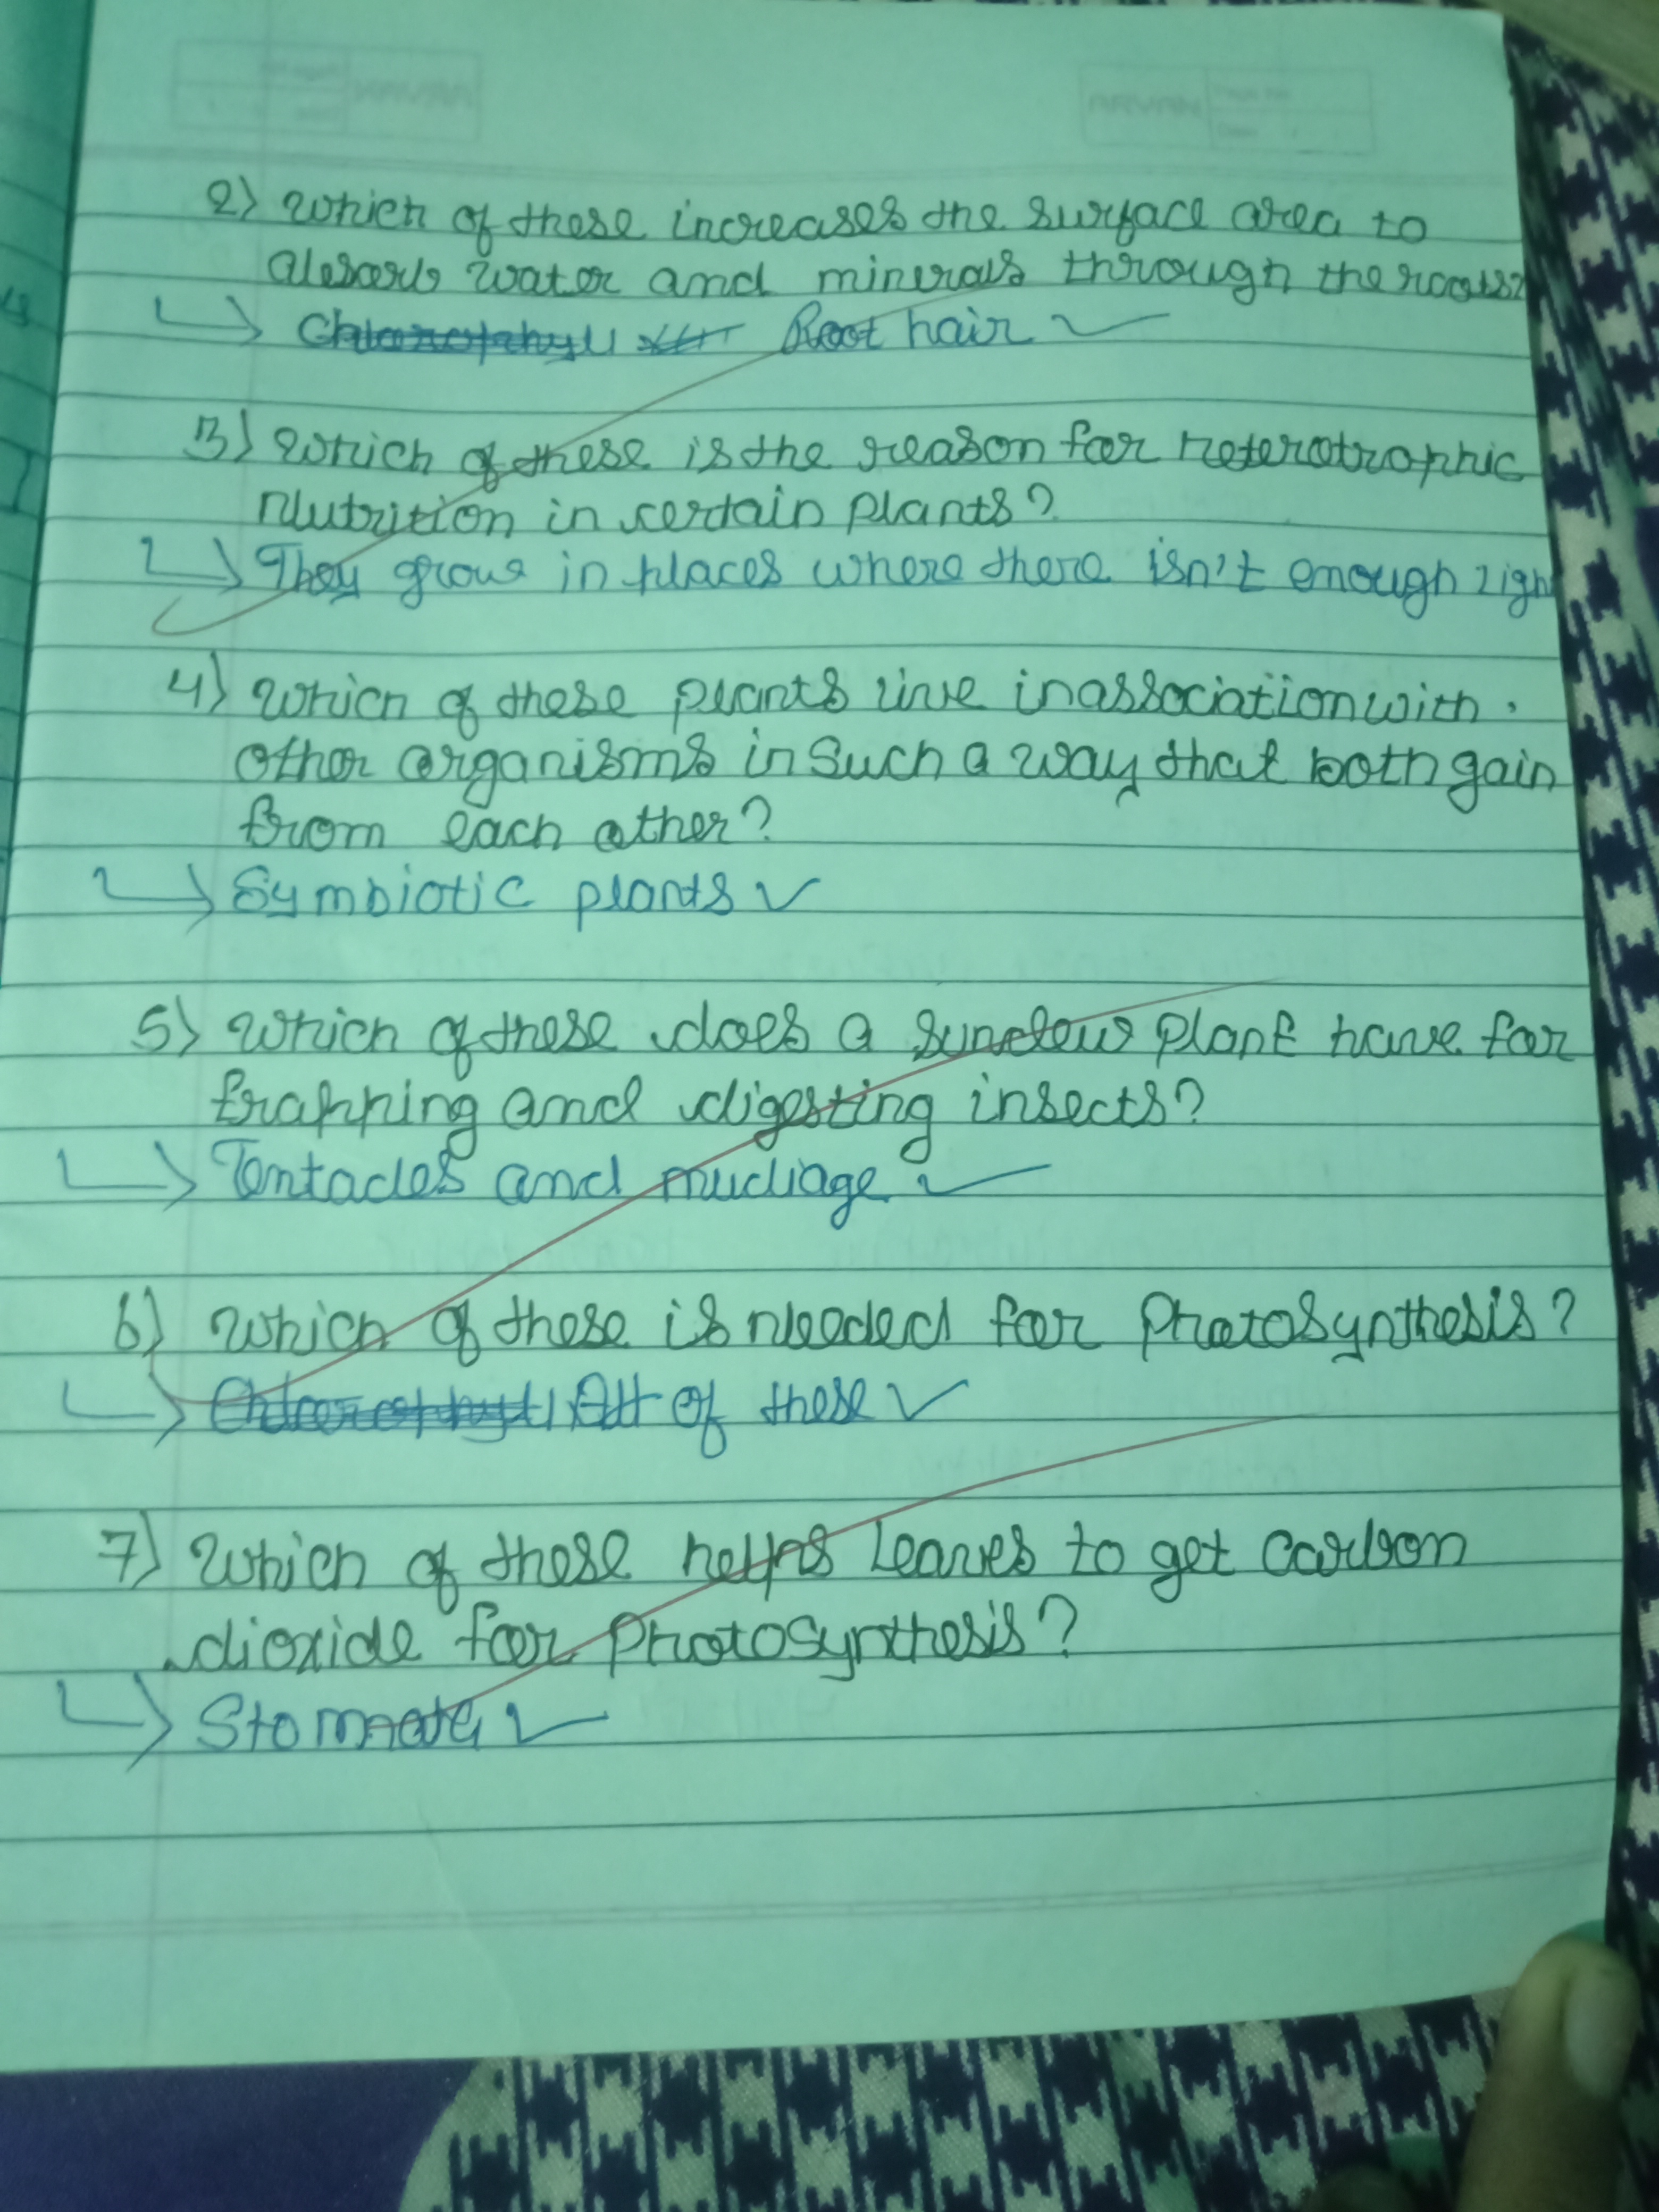 2) Which of these increases the surface area to
absorb water and minerals through the roots?
Root hair
3) Which of these is the reason for heterotrophic
Nutrition in certain plants?
They grow in places where there isn't enough ligh
4) Which of these plants live in association with
other organisms in such a way that both gain
from each other?
Symbiotic plants
5) Which of these does a sundew plant have for
trapping and digesting insects?
Tentacles and mucliage
6) Which of these is needed for Photosynthesis?
All of these
7) Which of these helps Leaves to get carbon
dioxide for Photosynthesis?
Stomata